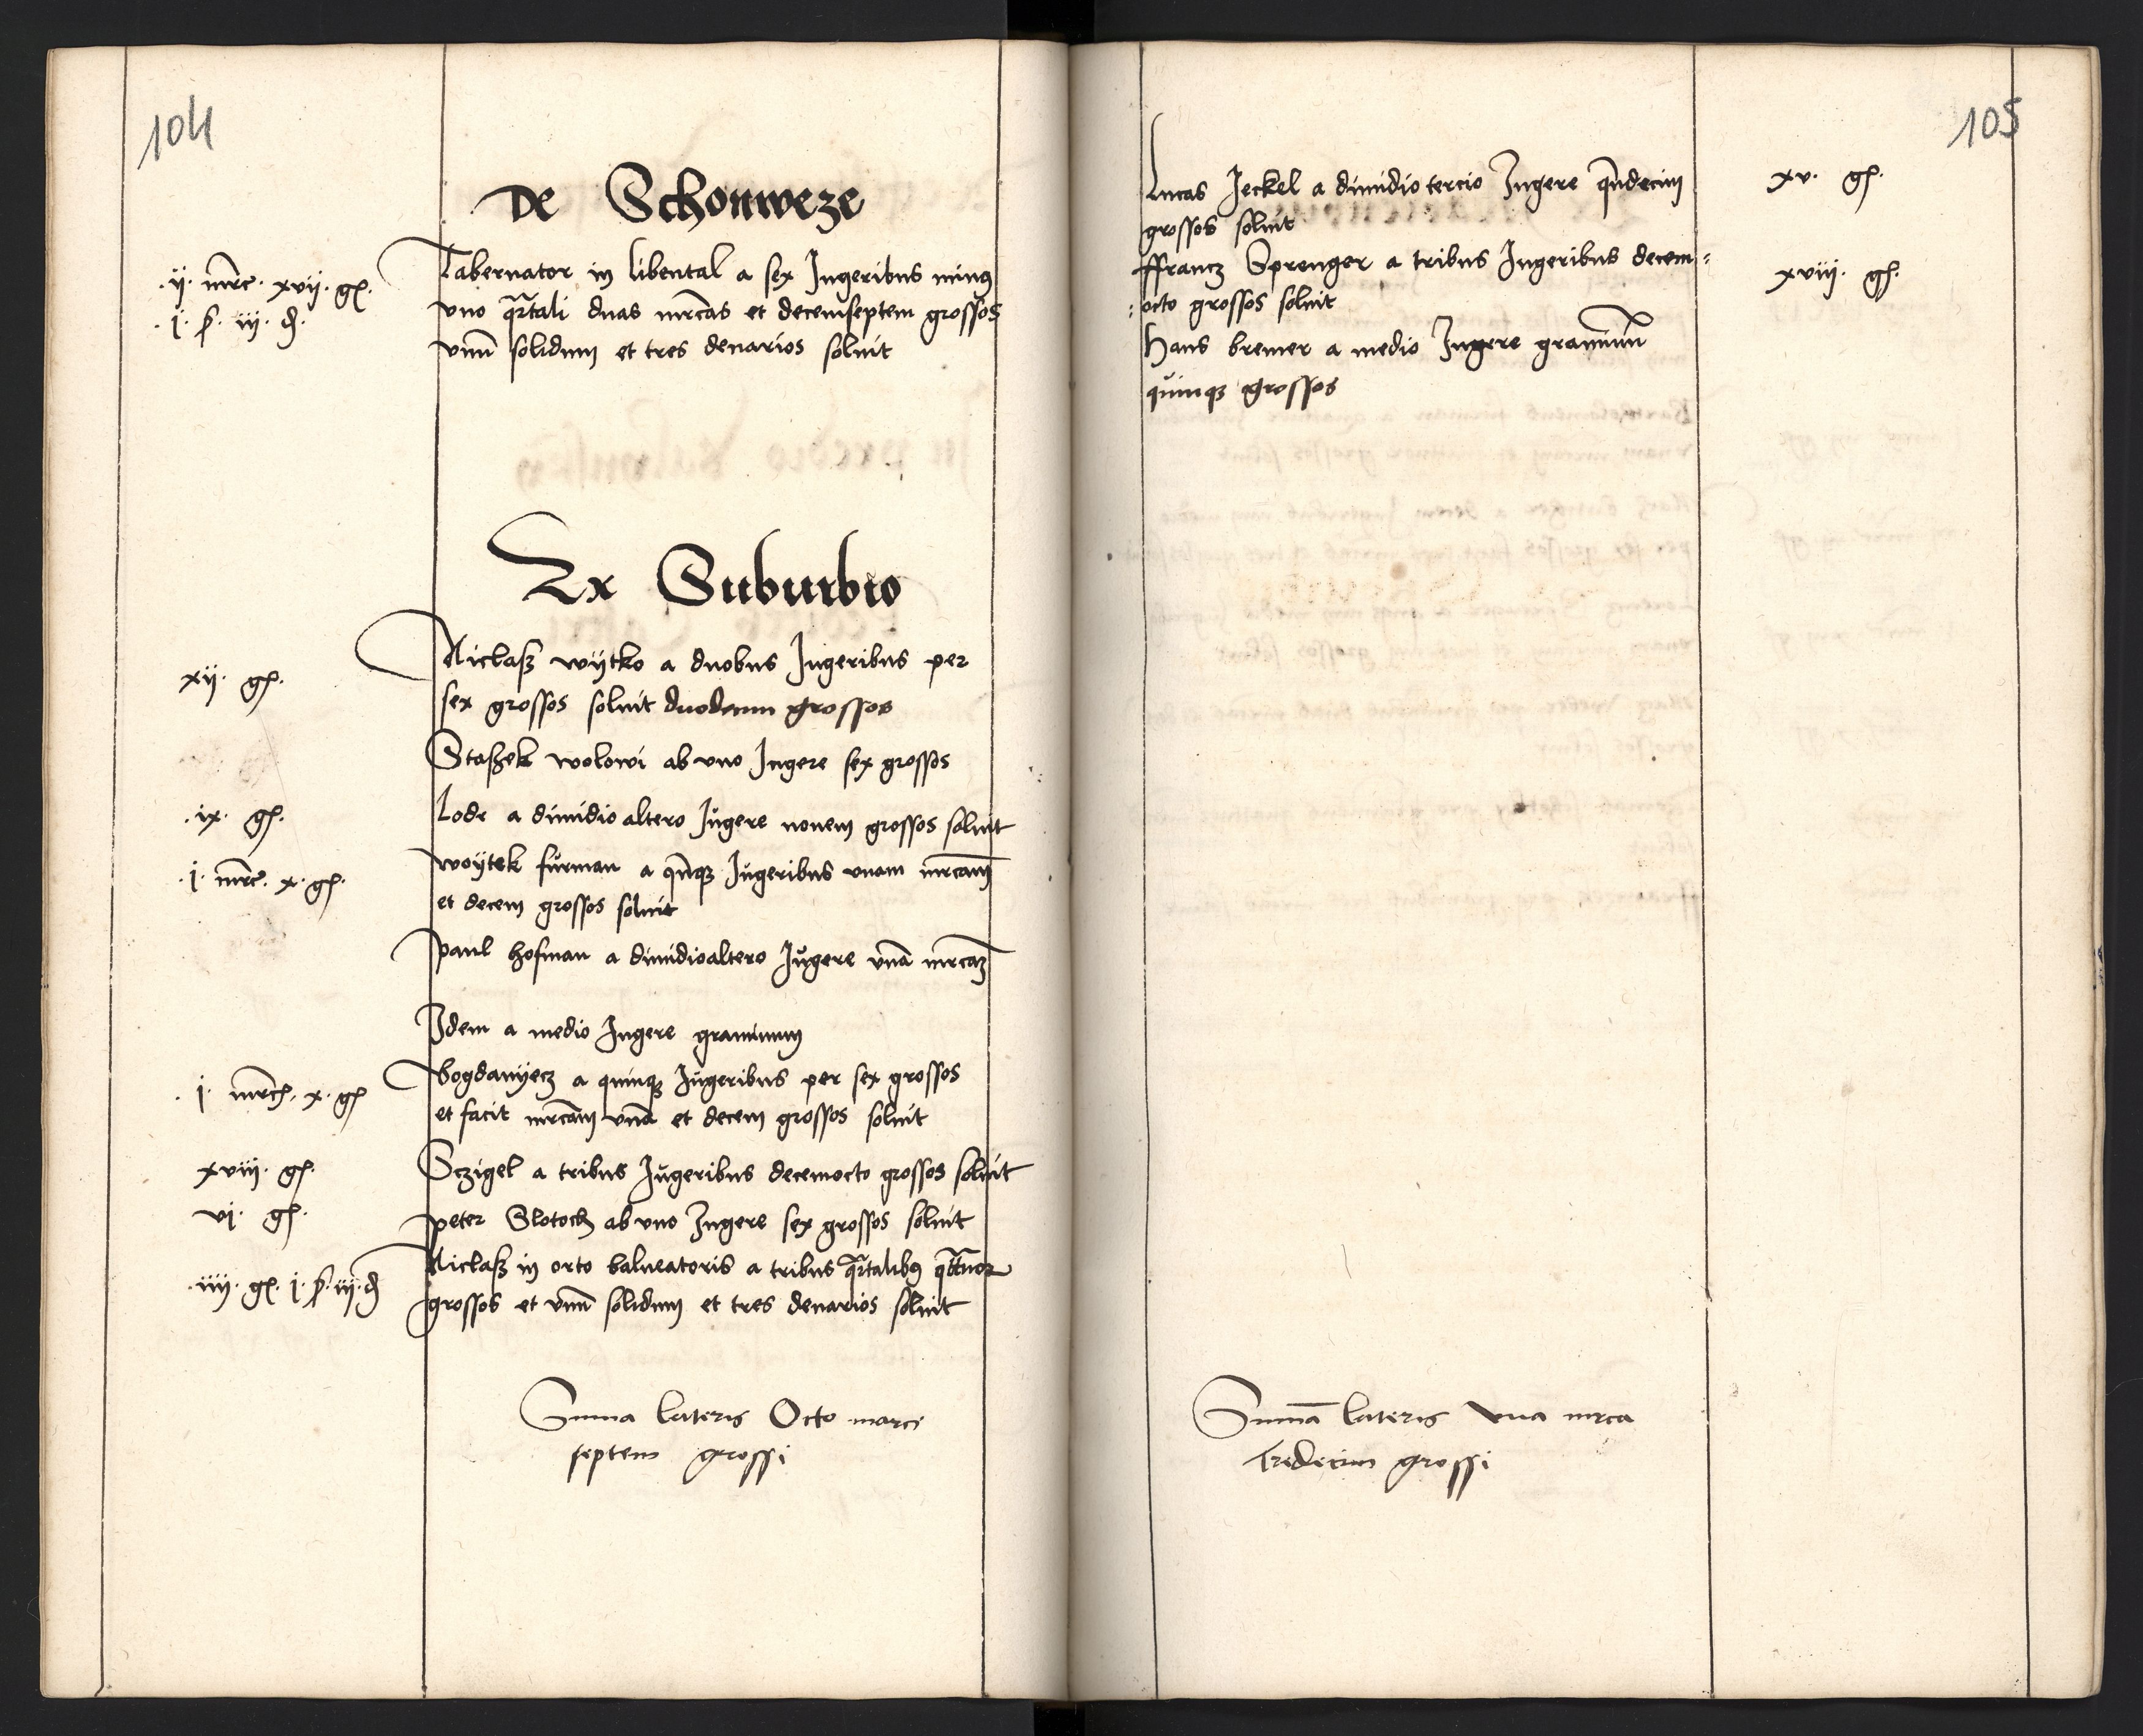 104
De Schonweze
.ij. mrc. xvij. gʒ.
.j. ß. iij. d.
Tabernator in libental a sex Jugeribus minus
vno qrtali duas mrcas et decemseptem grossos
vnū solidum et tres denarios soluit
Ex Suburbio
xij. gʒ.
Niclaß wÿtko a duobus Jugeribus per
sex grossos soluit duodecim grossos
Staßek wolowi ab vno Jugere sex grossos
.ix. gʒ.
Lode a dimidio altero Jugere nouem grossos soluit
.j. mrc. x. gʒ.
woÿtek furman a qnqʒ Jugeribus vnam mrcam
et decem grossos soluit
paul hofman a dimidioaltero Jugere vnā mrcaʒ
Idem a medio Jugere graminum
.j. mrc. x. gʒ
bogdanÿecz a quinqʒ Jugeribus per sex grossos
et facit mrcam vnā et decem grossos soluit
xviij. gʒ.
Sczigel a tribus Jugeribus decemocto grossos soluit
vj. gʒ.
peter Slotoch ab vno Jugere sex grossos soluit
.iiij. gʒ. j. ß. iij. d
Niclaß in orto balneatoris a tribus qrtalibꝰ qttuor
grossos et vnū solidum et tres denarios soluit
Suma lateris Octo marci
septem grossi
105
Lucas Jeckel a dimidio tercio Jugere qndecim
xv. gʒ.
grossos soluit
ffrancz Sprenger a tribus Jugeribus decem=
xviij. gʒ.
:octo grossos soluit
Hans bremer a medio Jugere graminū
quinqʒ grossos
Sumā lateris vna mrca
Tredecim grossi